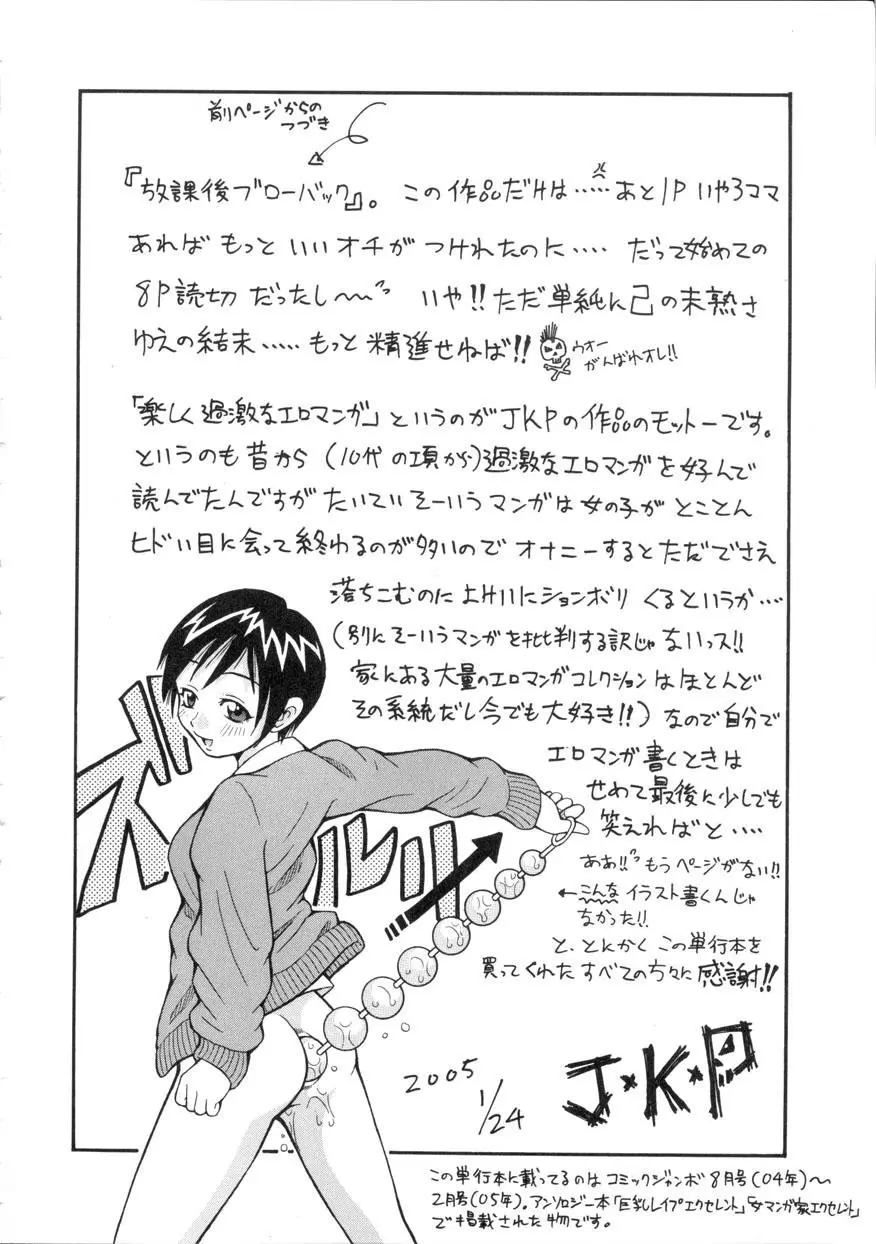 前ページからの
つづき
『放課後ブローバック』。この作品だけは……あと1Pいや3コマ
あればもっといいオチがつけれたのに…‥だって始めての
8P読切だったし〜 いや!!ただ単純に己の未熟さ
ゆえの結末……もっと精進せねば!!
ウオー
がんばれオレ!!
「楽しく過激なエロマンガ」というのがJKPの作品のモットーです。
というのも昔から(10代の項から)過激なエロマンガを好んで
読んでたんですがたいていそーいうマンガは女の子がとことん
ヒドい目に会って終わるのが多いのでオナニーするとただでさえ
落ちこむのによけいにションボリくるというか…‥
(別にそーいうマンガを批判する訳じゃないっス!!
家にある大量のエロマンガコレクションはほとんど
その系統だし今でも大好き!!)なので自分で
エロマンガ書くときは
せめて最後に少しでも
笑えればと…‥
ああ!!もうページがない!!
←こんなイラスト書くんじゃ
なかった!!
と、とんかくこの単行本を
買ってくれたすべての方々に感謝!!
ズルルリ
2005
1/24
J・K・P
この単行本に載ってるのはコミックジャンボ8月号(04年)〜
2月号(05年)。アンソロジー本「巨乳レイプエクセレント」「女マンガ家エクセレント」
で掲載された物です。